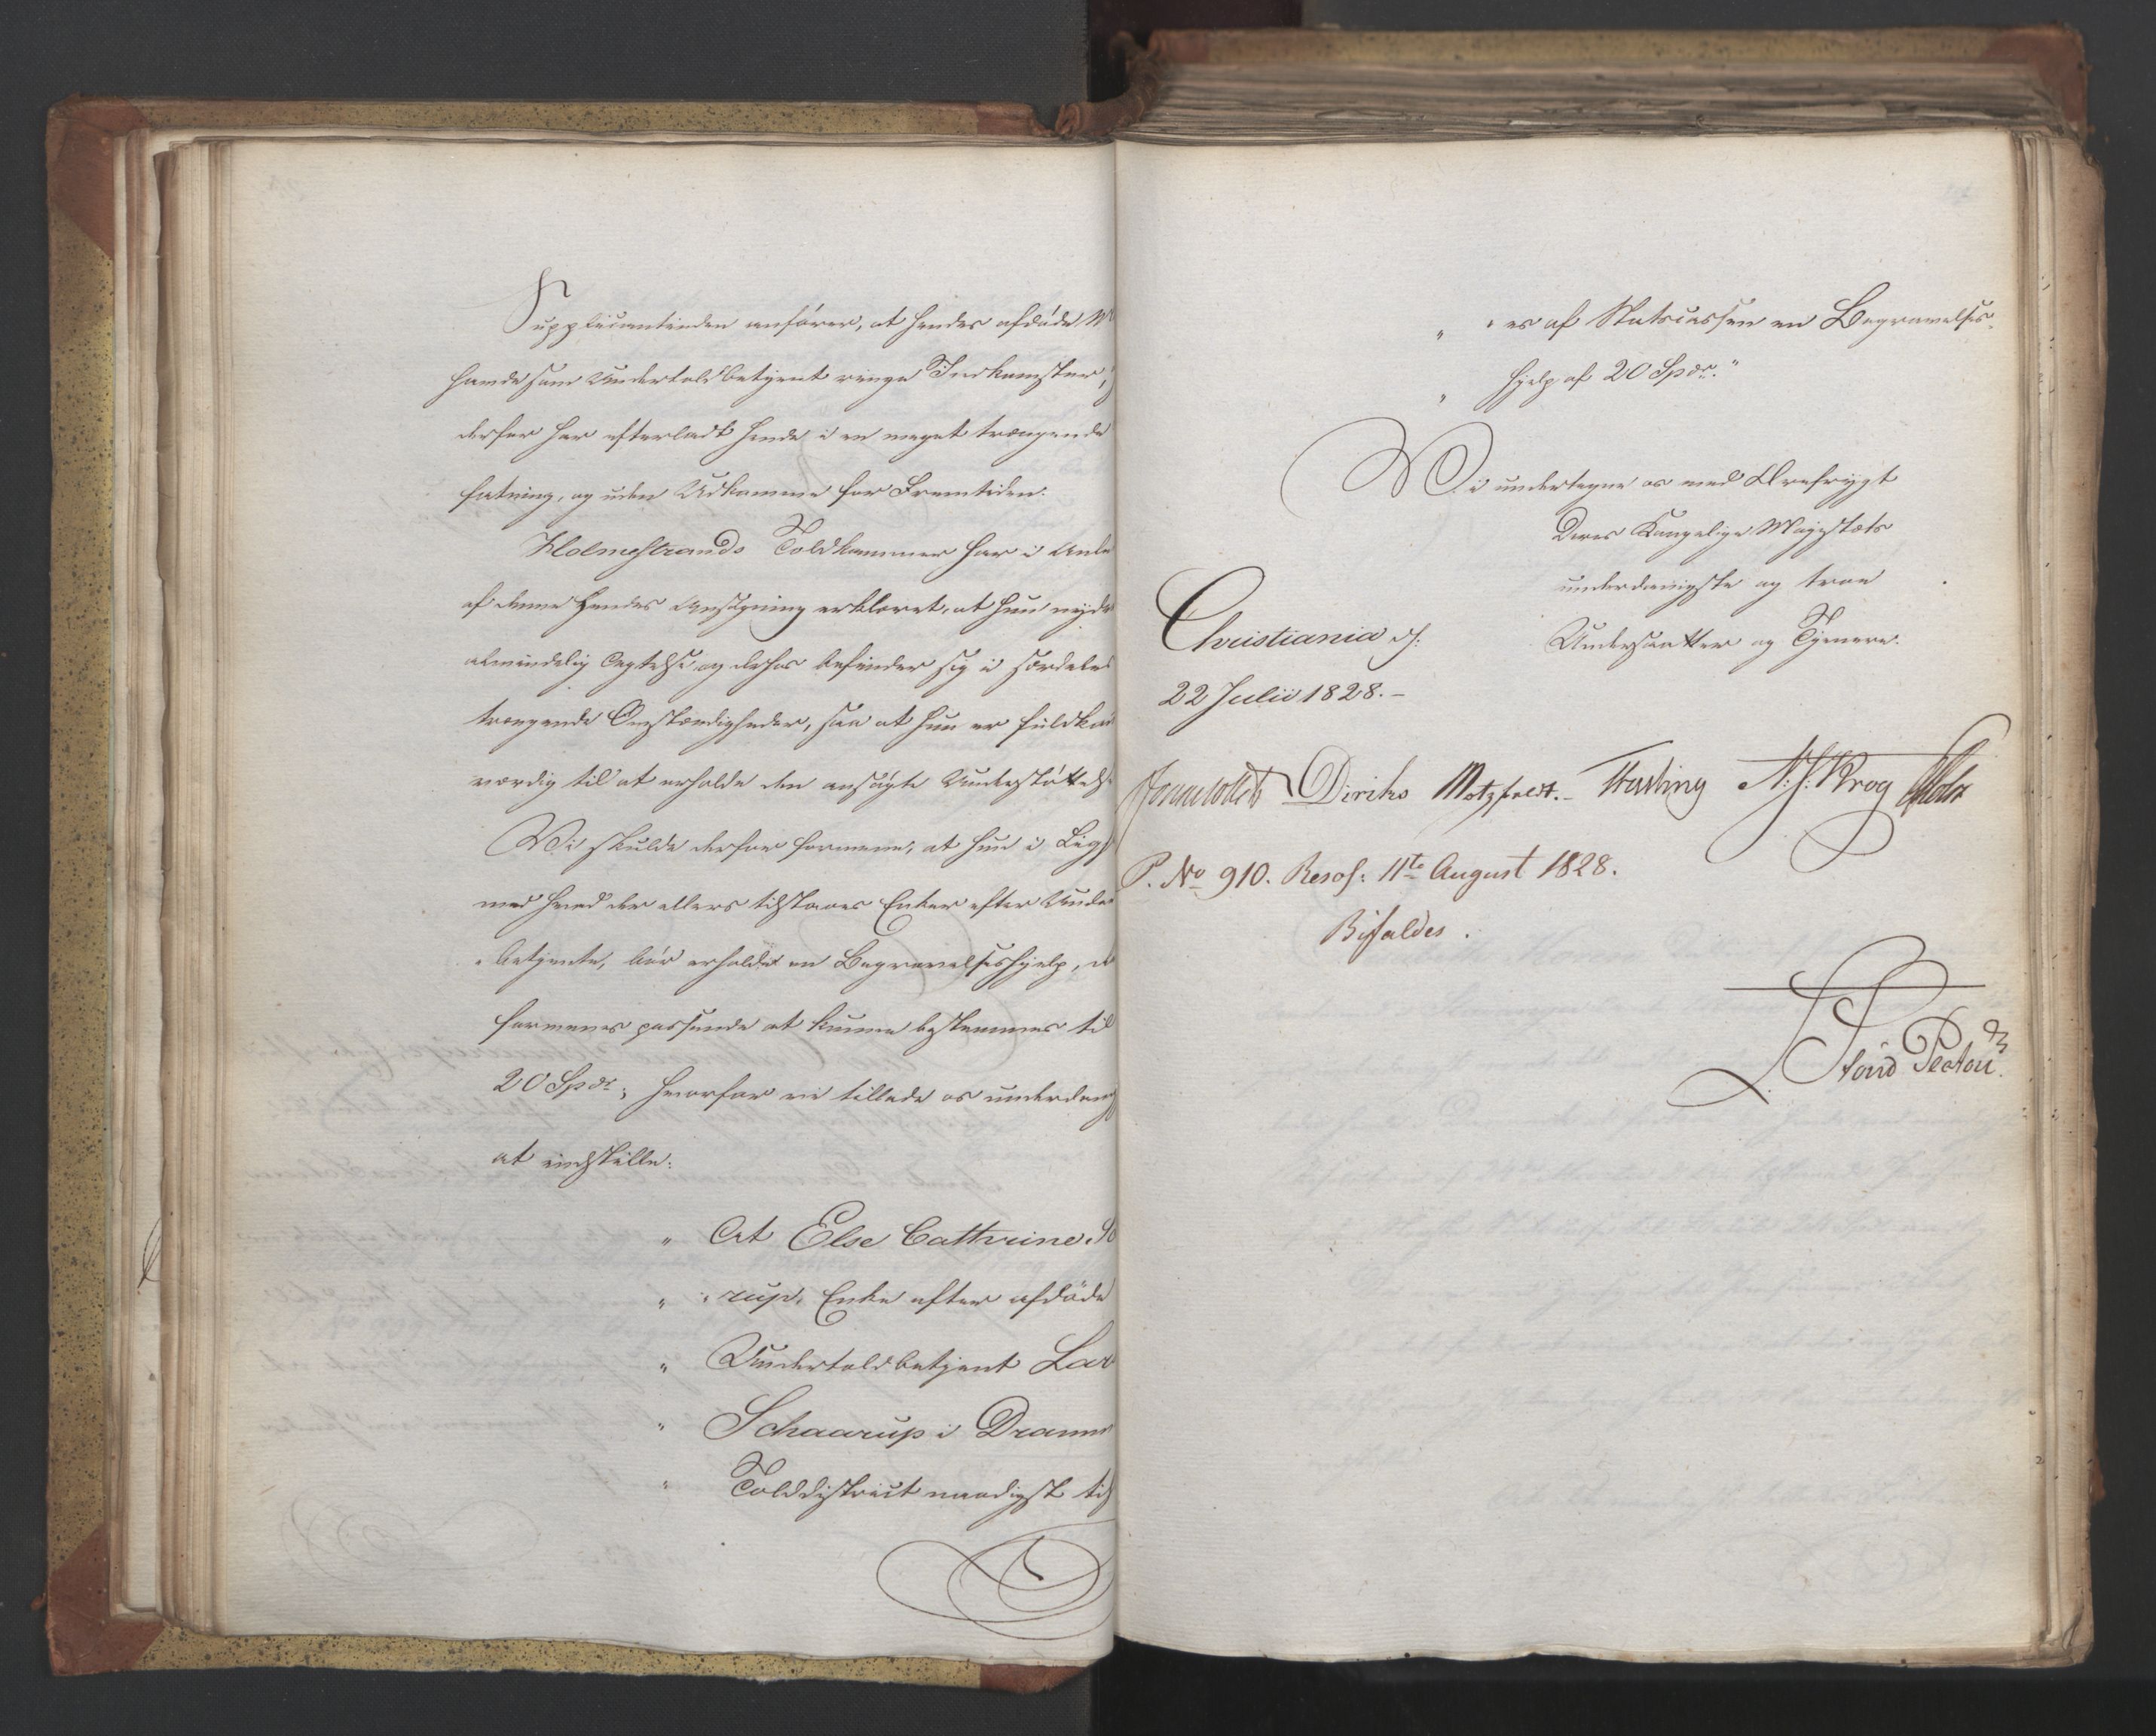 Supplicantinden anförer, at hendes afdöde M
havde som Undertoldbetjent ringe Indkomster,
derfor har efterladt hende i en meget trængende
fatning, og uden Udkomme for Fremtiden.
Holmestrands Toldkammer har i Anle
af denne Hendes Ansögning erklæret, at hun nyder
almindelig Agtelse og derhos befinder sig i særdeles
trængende Omstændigheder, saa at hun er fuldkom
værdig til at erholde den ansögte Understöttelse
Vi skulde derfor formene, at hun i Lig
med hvad der ellers tilstaaes Enker efter Under
betjente, bör erholde en Begravelseshjelp, der
formenes passende at kunne bestemmes til
20 Spdr; hvorfor vi tillade os underdanig
at indstille:
" At Else Cathrine
" rup, Enke efter afdöde
" Undertoldbetjent Lar
" Schaarup i Dramm
" Tolddistrict naadigst til
" es af Statscassen en Begravelses
" hjelp af 20 Spdr."
Vi undertegne os med Ærefrygt
Deres Kongelige Majestæts
underdanigste og troe
Undersaatter og Tjenere.
Christiania d:
22 Julii 1828.-
Jonas Collett Diriks Motzfeldt.- Fasting N: J: Krog Holst
P. No 910. Resol: 11te August 1828.
Bifaldes.